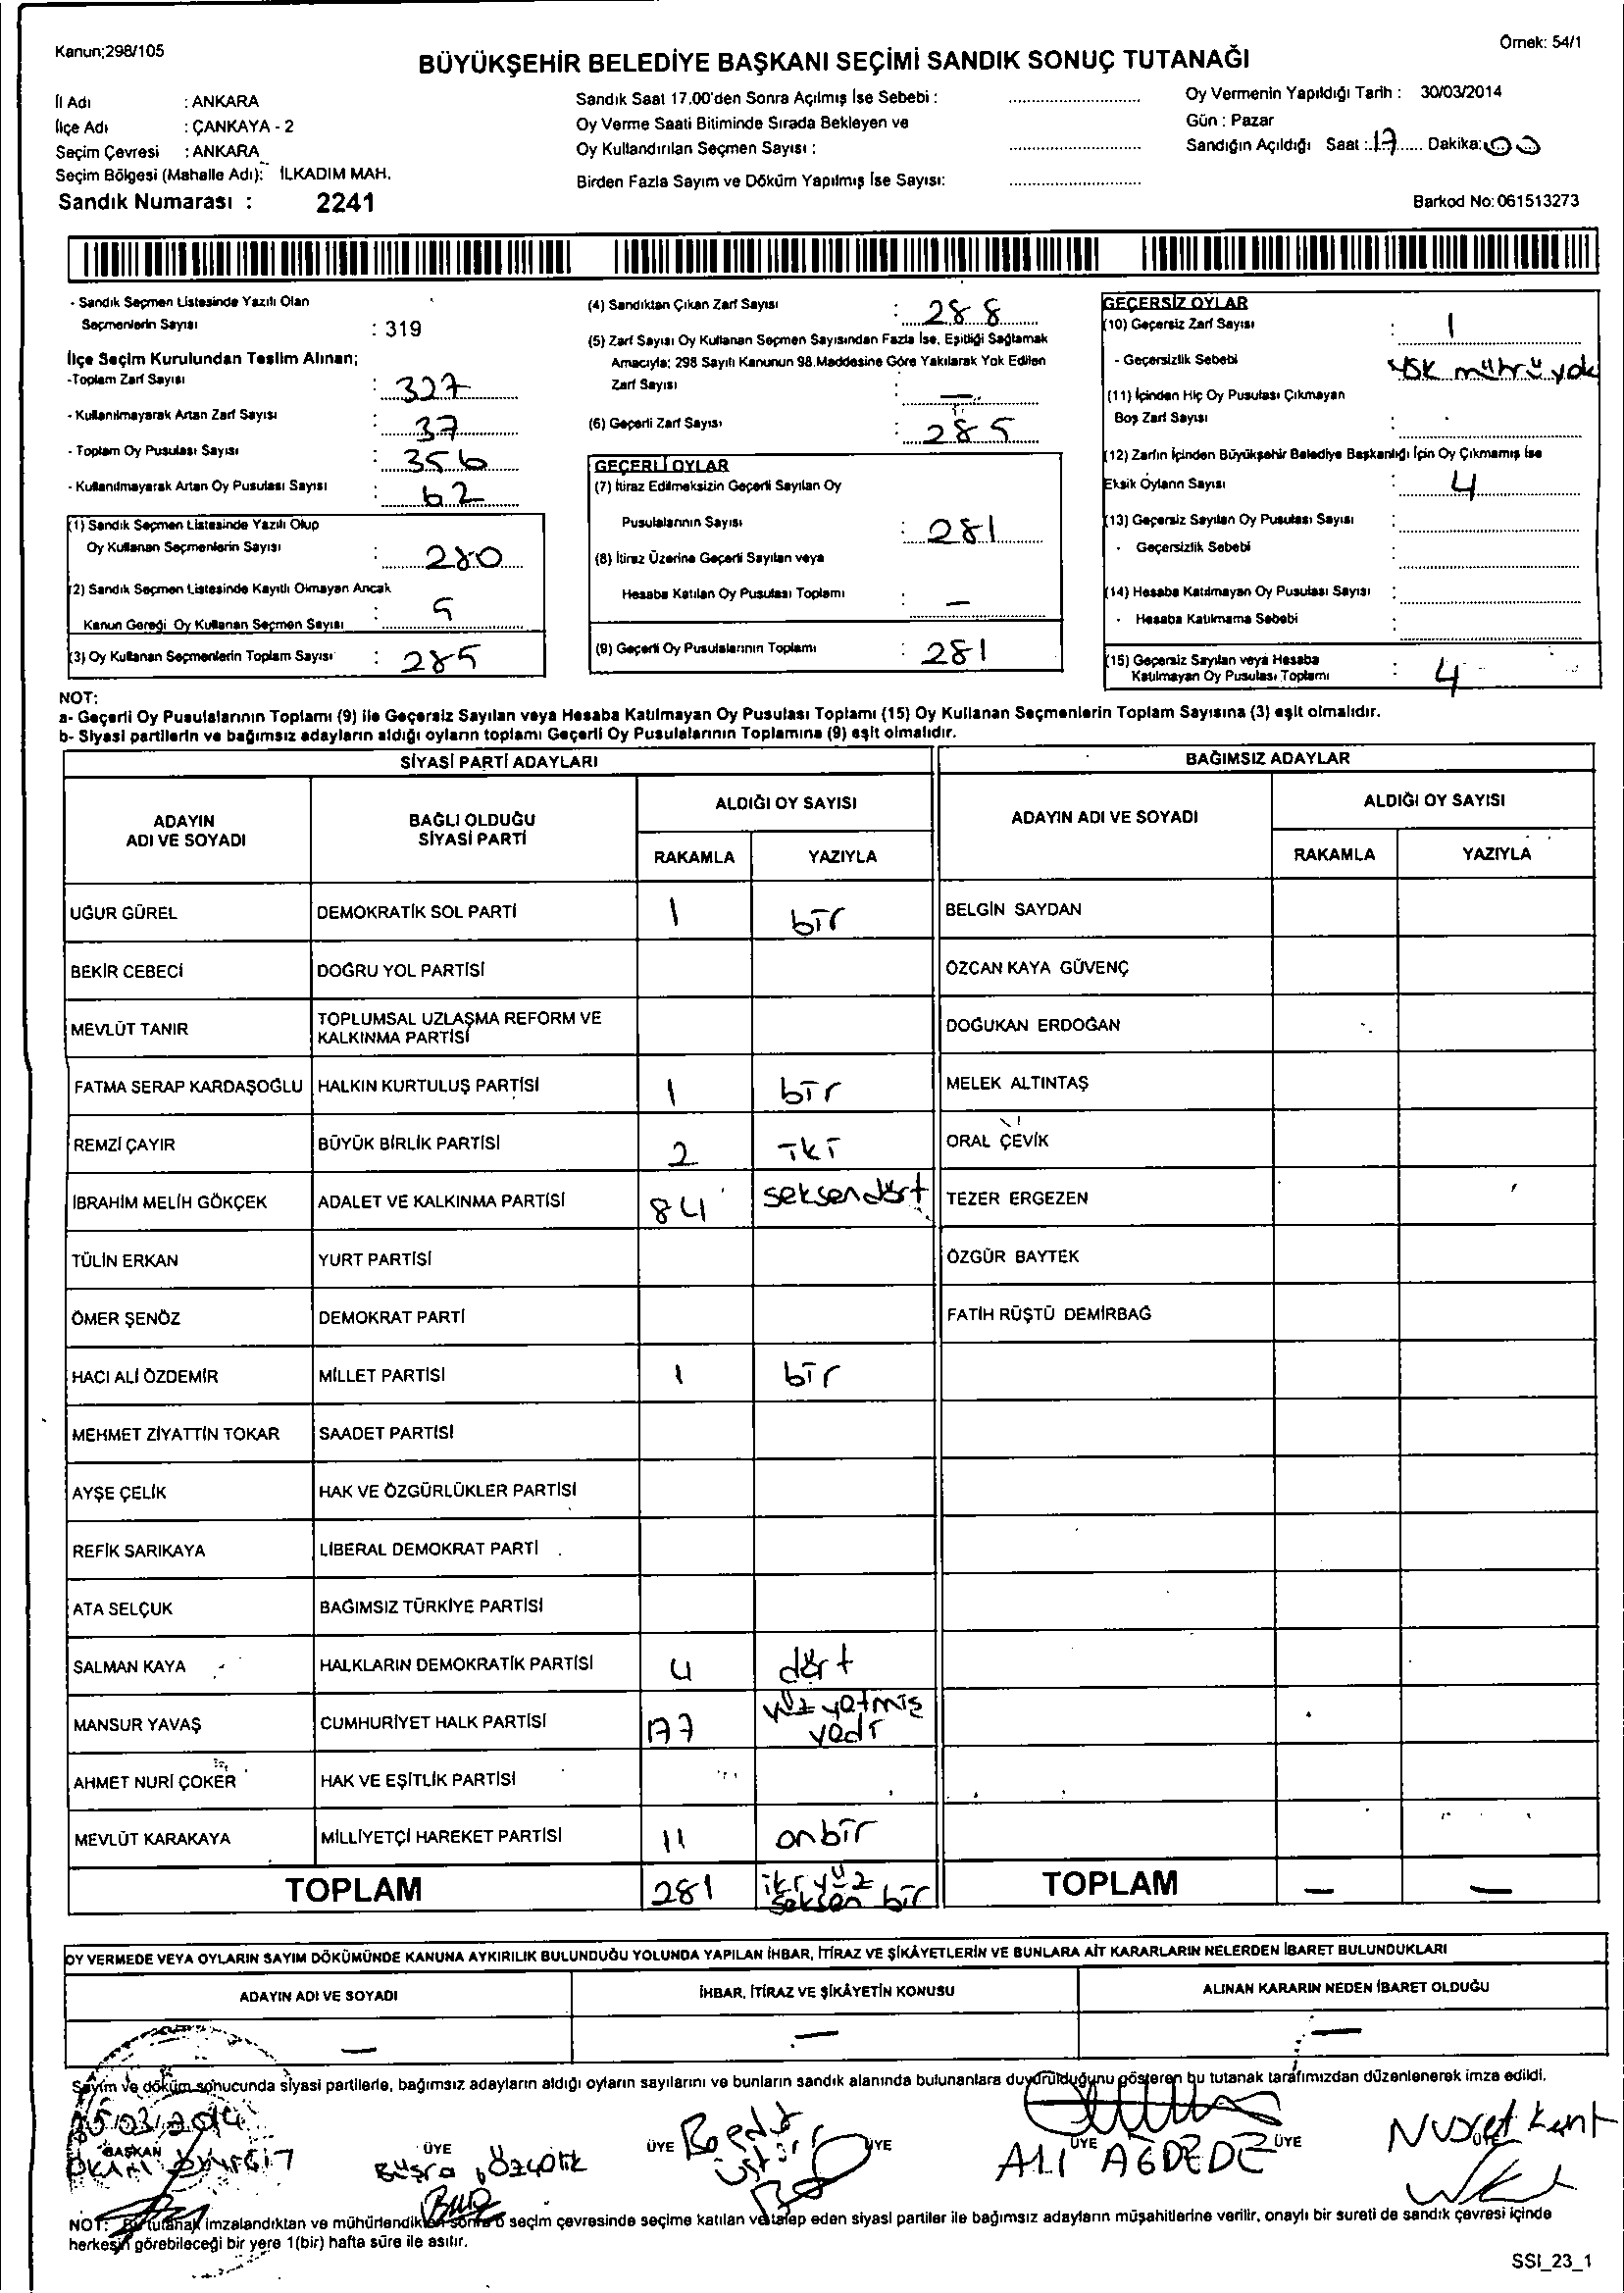 Kanun;298/105
Örnek: 54/1
BÜYÜKŞEHİR BELEDİYE BAŞKANI SEÇİMİ SANDIK SONUÇ TUTANAĞI
İl Adı : ANKARA
İlçe Adı : ÇANKAYA - 2
Seçim Çevresi : ANKARA
Seçim Bölgesi (Mahalle Adı): İLKADIM MAH.
Sandık Numarası : 2241
Sandık Saat 17.00'den Sonra Açılmış İse Sebebi :
Oy Verme Saati Bitiminde Sırada Bekleyen ve
Oy Kullandırılan Seçmen Sayısı :
Birden Fazla Sayım ve Döküm Yapılmış İse Sayısı:
Oy Vermenin Yapıldığı Tarih : 30/03/2014
Gün : Pazar
Sandığın Açıldığı Saat : 17 Dakika: 00
Barkod No: 061513273
- Sandık Seçmen Listesinde Yazılı Olan
Seçmenlerin Sayısı : 319
İlçe Seçim Kurulundan Teslim Alınan;
-Toplam Zarf Sayısı : 327
- Kullanılmayarak Artan Zarf Sayısı : 37
- Toplam Oy Pusulası Sayısı : 356
- Kullanılmayarak Artan Oy Pusulası Sayısı : 62
(1) Sandık Seçmen Listesinde Yazılı Olup
Oy Kullanan Seçmenlerin Sayısı : 280
(2) Sandık Seçmen Listesinde Kayıtlı Olmayan Ancak
Kanun Gereği Oy Kullanan Seçmen Sayısı : 5
(3) Oy Kullanan Seçmenlerin Toplam Sayısı : 285
(4) Sandıktan Çıkan Zarf Sayısı : 288
(5) Zarf Sayısı Oy Kullanan Seçmen Sayısından Fazla İse, Eşitliği Sağlamak
Amacıyla; 298 Sayılı Kanunun 98.Maddesine Göre Yakılarak Yok Edilen
Zarf Sayısı : —
(6) Geçerli Zarf Sayısı : 285
GEÇERLİ OYLAR
(7) İtiraz Edilmeksizin Geçerli Sayılan Oy
Pusulalarının Sayısı : 281
(8) İtiraz Üzerine Geçerli Sayılan veya
Hesaba Katılan Oy Pusulası Toplamı : —
(9) Geçerli Oy Pusulalarının Toplamı : 281
GEÇERSİZ OYLAR
(10) Geçersiz Zarf Sayısı : 1
- Geçersizlik Sebebi YSK mührü yok
(11) İçinden Hiç Oy Pusulası Çıkmayan
Boş Zarf Sayısı :
(12) Zarfın İçinden Büyükşehir Belediye Başkanlığı İçin Oy Çıkmamış İse
Eksik Oyların Sayısı : 4
(13) Geçersiz Sayılan Oy Pusulası Sayısı :
- Geçersizlik Sebebi :
(14) Hesaba Katılmayan Oy Pusulası Sayısı :
- Hesaba Katılmama Sebebi :
(15) Geçersiz Sayılan veya Hesaba
Katılmayan Oy Pusulası Toplamı : 4
NOT:
a- Geçerli Oy Pusulalarının Toplamı (9) ile Geçersiz Sayılan veya Hesaba Katılmayan Oy Pusulası Toplamı (15) Oy Kullanan Seçmenlerin Toplam Sayısına (3) eşit olmalıdır.
b- Siyasi partilerin ve bağımsız adayların aldığı oyların toplamı Geçerli Oy Pusulalarının Toplamına (9) eşit olmalıdır.
SİYASİ PARTİ ADAYLARI
BAĞIMSIZ ADAYLAR
ADAYIN
ADI VE SOYADI
BAĞLI OLDUĞU
SİYASİ PARTİ
ALDIĞI OY SAYISI
RAKAMLA YAZIYLA
ADAYIN ADI VE SOYADI
ALDIĞI OY SAYISI
RAKAMLA YAZIYLA
UĞUR GÜREL DEMOKRATİK SOL PARTİ 1 bir BELGİN SAYDAN
BEKİR CEBECİ DOĞRU YOL PARTİSİ ÖZCAN KAYA GÜVENÇ
MEVLÜT TANIR TOPLUMSAL UZLAŞMA REFORM VE
KALKINMA PARTİSİ DOĞUKAN ERDOĞAN
FATMA SERAP KARDAŞOĞLU HALKIN KURTULUŞ PARTİSİ 1 bir MELEK ALTINTAŞ
REMZİ ÇAYIR BÜYÜK BİRLİK PARTİSİ 2 iki ORAL ÇEVİK
İBRAHİM MELİH GÖKÇEK ADALET VE KALKINMA PARTİSİ 84 seksendört TEZER ERGEZEN
TÜLİN ERKAN YURT PARTİSİ ÖZGÜR BAYTEK
ÖMER ŞENÖZ DEMOKRAT PARTİ FATİH RÜŞTÜ DEMİRBAĞ
HACI ALİ ÖZDEMİR MİLLET PARTİSİ 1 bir
MEHMET ZİYATTİN TOKAR SAADET PARTİSİ
AYŞE ÇELİK HAK VE ÖZGÜRLÜKLER PARTİSİ
REFİK SARIKAYA LİBERAL DEMOKRAT PARTİ
ATA SELÇUK BAĞIMSIZ TÜRKİYE PARTİSİ
SALMAN KAYA HALKLARIN DEMOKRATİK PARTİSİ 4 dört
MANSUR YAVAŞ CUMHURİYET HALK PARTİSİ 177 yüz yetmiş
yedi
AHMET NURİ ÇOKER HAK VE EŞİTLİK PARTİSİ
MEVLÜT KARAKAYA MİLLİYETÇİ HAREKET PARTİSİ 11 onbir
TOPLAM 281 iki yüz
seksen bir TOPLAM — —
OY VERMEDE VEYA OYLARIN SAYIM DÖKÜMÜNDE KANUNA AYKIRILIK BULUNDUĞU YOLUNDA YAPILAN İHBAR, İTİRAZ VE ŞİKÂYETLERİN VE BUNLARA AİT KARARLARIN NELERDEN İBARET BULUNDUKLARI
ADAYIN ADI VE SOYADI İHBAR, İTİRAZ VE ŞİKÂYETİN KONUSU ALINAN KARARIN NEDEN İBARET OLDUĞU
— — —
Sayım ve döküm sonucunda siyasi partilerle, bağımsız adayların aldığı oyların sayılarını ve bunların sandık alanında bulunanlara duyurulduğunu gösteren bu tutanak tarafımızdan düzenlenerek imza edildi.
BAŞKAN ÜYE ÜYE ÜYE ÜYE ÜYE
Büşra Özçelik ALİ AĞDEDE Nusret Kent
NOT: Bu tutanak imzalandıktan ve mühürlendikten sonra o seçim çevresinde seçime katılan ve talep eden siyasi partiler ile bağımsız adayların müşahitlerine verilir, onaylı bir sureti de sandık çevresi içinde
herkesin görebileceği bir yere 1(bir) hafta süre ile asılır.
SSI_23_1